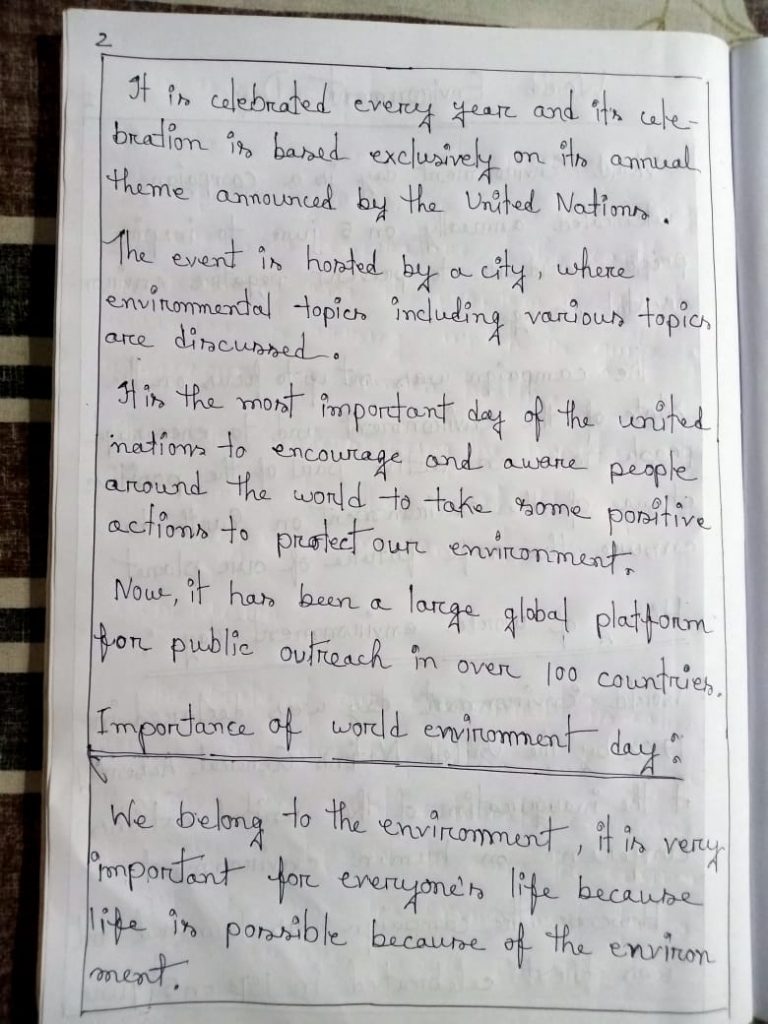 2
It is celebrated every year and its cele-
bration is based exclusively on its annual
theme announced by the United Nations.
The event is hosted by a city, where
environmental topics including various topics
are discussed.
It is the most important day of the united
nations to encourage and aware people
around the world to take some positive
actions to protect our environment.
Now, it has been a large global platform
for public outreach in over 100 countries.
Importance of world environment day:
We belong to the environment, it is very
important for everyone's life because
life is possible because of the environ
ment.